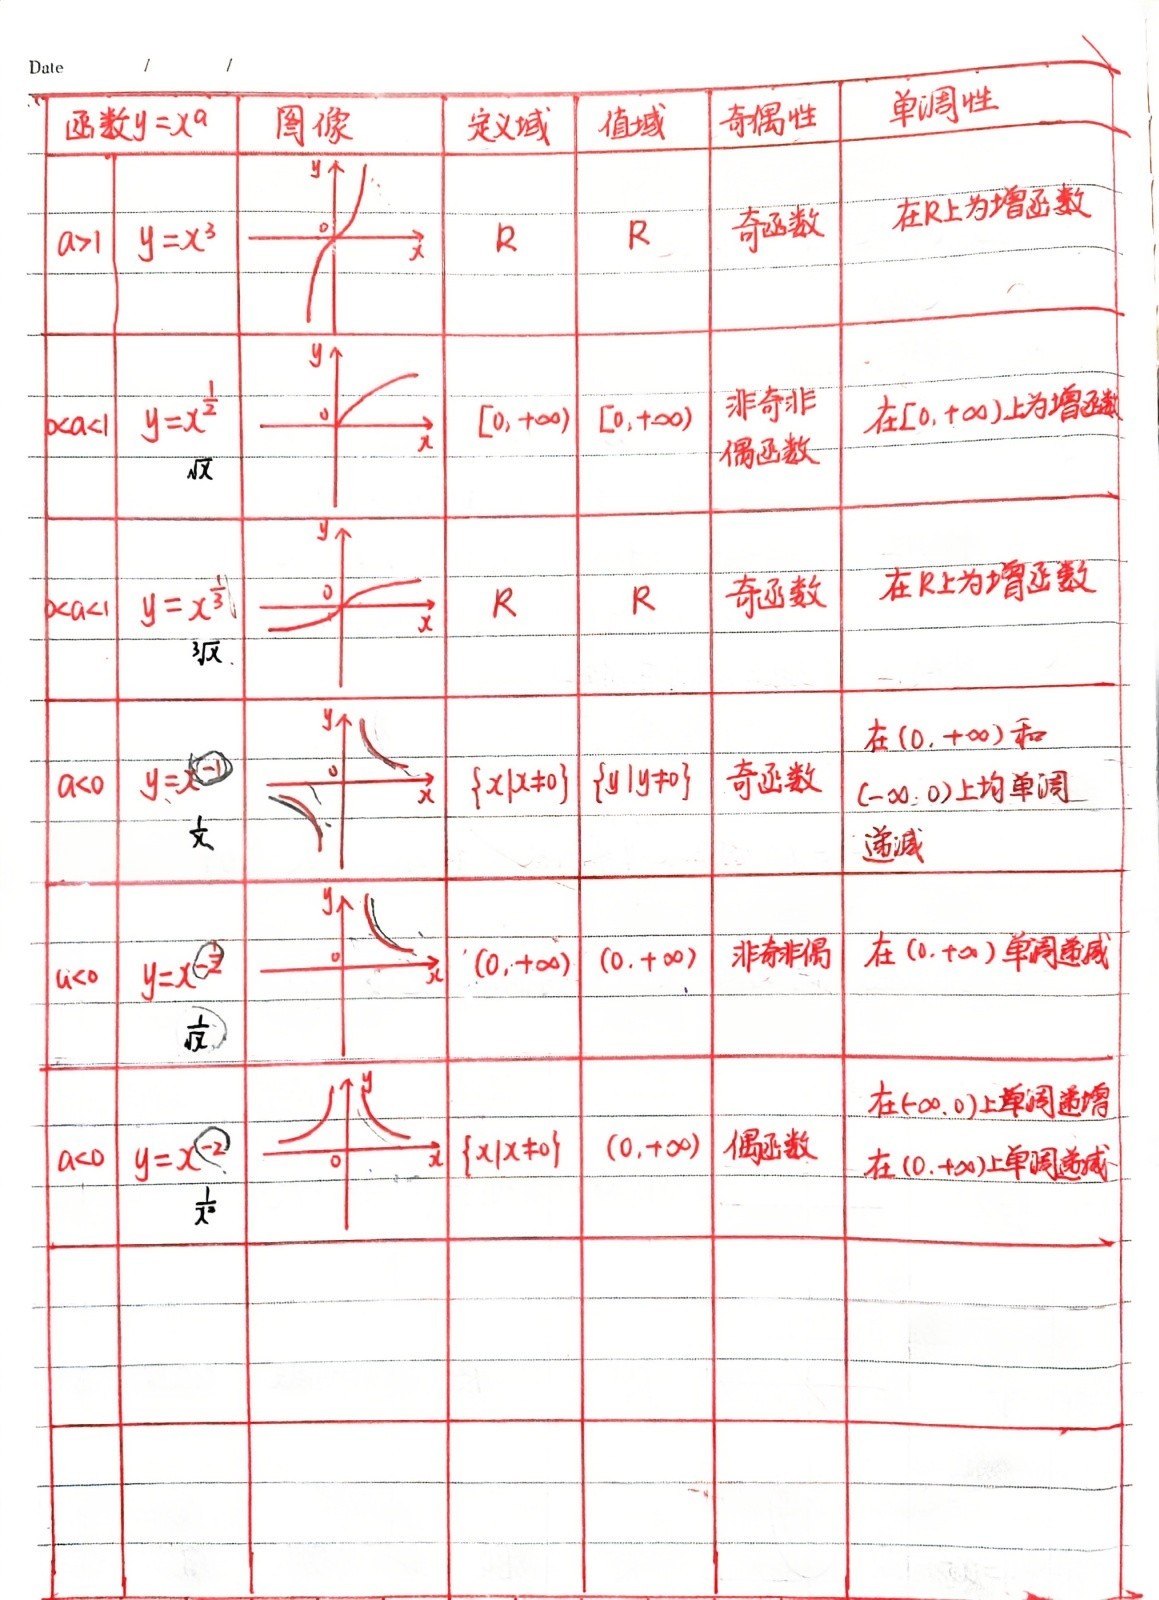 Date / /
函数y=xᵃ 图像 定义域 值域 奇偶性 单调性
y
a>1 y=x³ 0 x R R 奇函数 在R上为增函数
y
0<a<1 y=x^{1/2} 0 x [0,+∞) [0,+∞) 非奇非 在[0,+∞)上为增函数
√x 偶函数
y
0<a<1 y=x^{1/3} 0 x R R 奇函数 在R上为增函数
³√x
y 在(0,+∞)和
a<0 y=x^{-1} 0 x {x|x≠0} {y|y≠0} 奇函数 (-∞,0)上均单调
1/x 递减
y
a<0 y=x^{-1/2} 0 x (0,+∞) (0,+∞) 非奇非偶 在(0,+∞)单调递减
1/√x
y 在(-∞,0)上单调递增
a<0 y=x^{-2} 0 x {x|x≠0} (0,+∞) 偶函数 在(0,+∞)上单调递减
1/x²